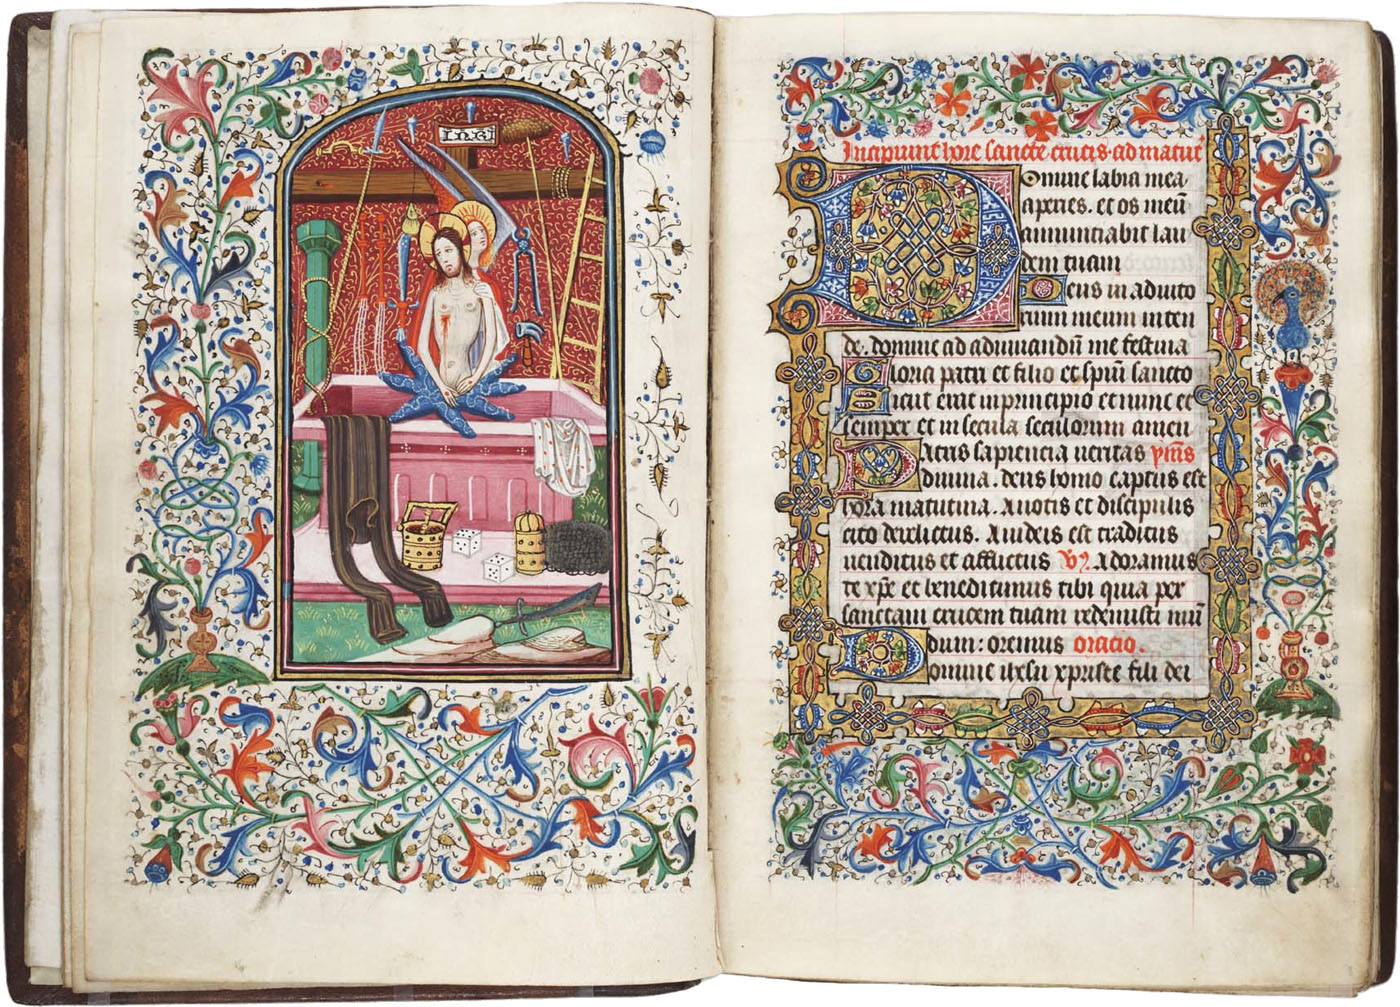 INRI
Incipiunt hore sancte crucis. ad matut̄
Domine labia mea
aperies. et os meū
annunciabit lau
dem tuam
Deus in adiuto
rium meum inten
de. domine ad adiuuandū me festina
Gloria patri et filio et spiri sancto
Sicut erat in principio et nunc et
semper et in secula seculorum amen
Patris sapiencia ueritas ymn̄s
diuina. deus homo captus est
hora matutina. A notis et discipulis
cito derelictus. A iudeis est traditus
uenditus et afflictus V̄ Adoramus
te xp̄e et benedicimus tibi quia per
sanctam crucem tuam redemisti mū
dum: oremus oracio.
Domine ihesu xpriste fili dei